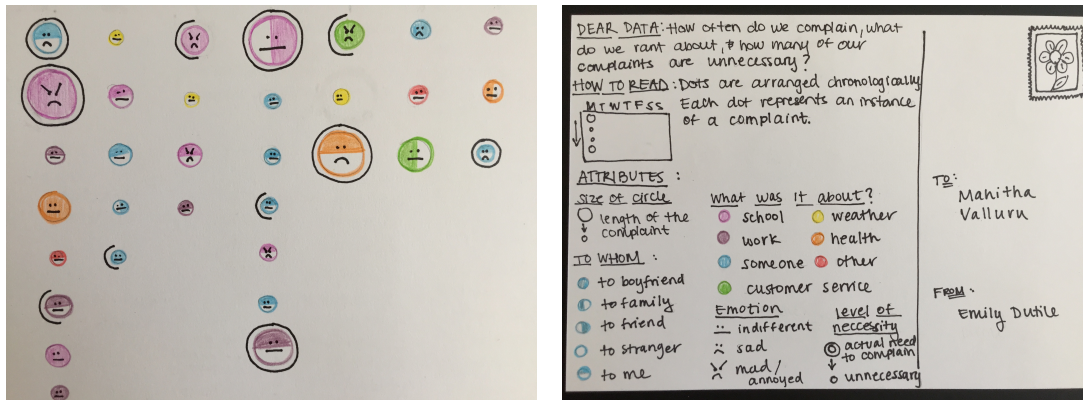 DEAR DATA: How often do we complain, what
do we rant about, & how many of our
complaints are unnecessary?
HOW TO READ: Dots are arranged chronologically
M T W T F S S
Each dot represents an instance
of a complaint.
ATTRIBUTES:
size of circle
length of the
complaint
TO WHOM:
to boyfriend
to family
to friend
to stranger
to me
What was it about?
school
weather
work
health
someone
other
customer service
Emotion
indifferent
sad
mad/
annoyed
level of
neccessity
actual need
to complain
unnecessary
TO:
Manitha
Valluru
FROM:
Emily Dutile